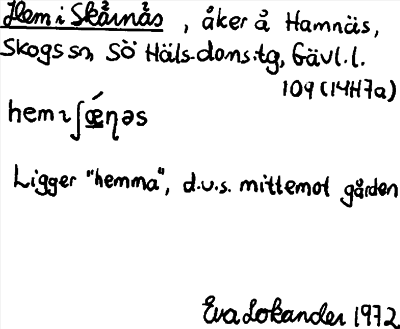 Hem i Skårnås , åker å Hamnäs,
Skogs sn, Sö Häls. doms. tg, Gävl. l.
109 (14H7a)
hem ɿ ʃœ́ŋəs
Ligger "hemma", d.v.s. mittemot gården
Eva Lokander 1972